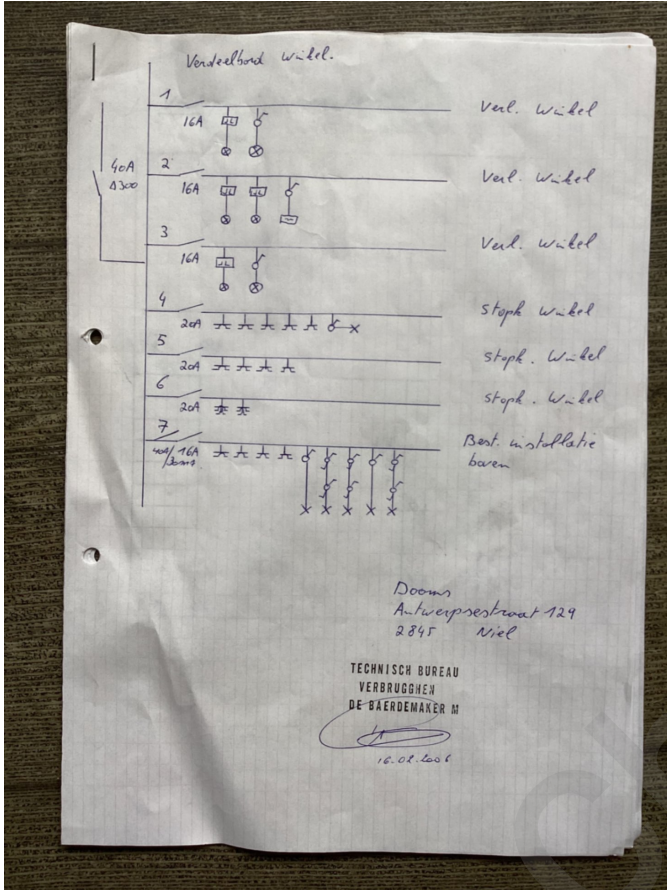 Verdeelbord winkel.
1
16A
Verl. Winkel
40A
Δ300
2
16A
Verl. Winkel
3
16A
Verl. Winkel
4
20A
stopk Winkel
5
20A
stopk. Winkel
6
20A
stopk. Winkel
7
40A/ 16A
30ms
Best. installatie
boven
Dooms
Antwerpsestraat 129
2845 Niel
TECHNISCH BUREAU
VERBRUGGHEN
DE BAERDEMAKER M
16.02.2006